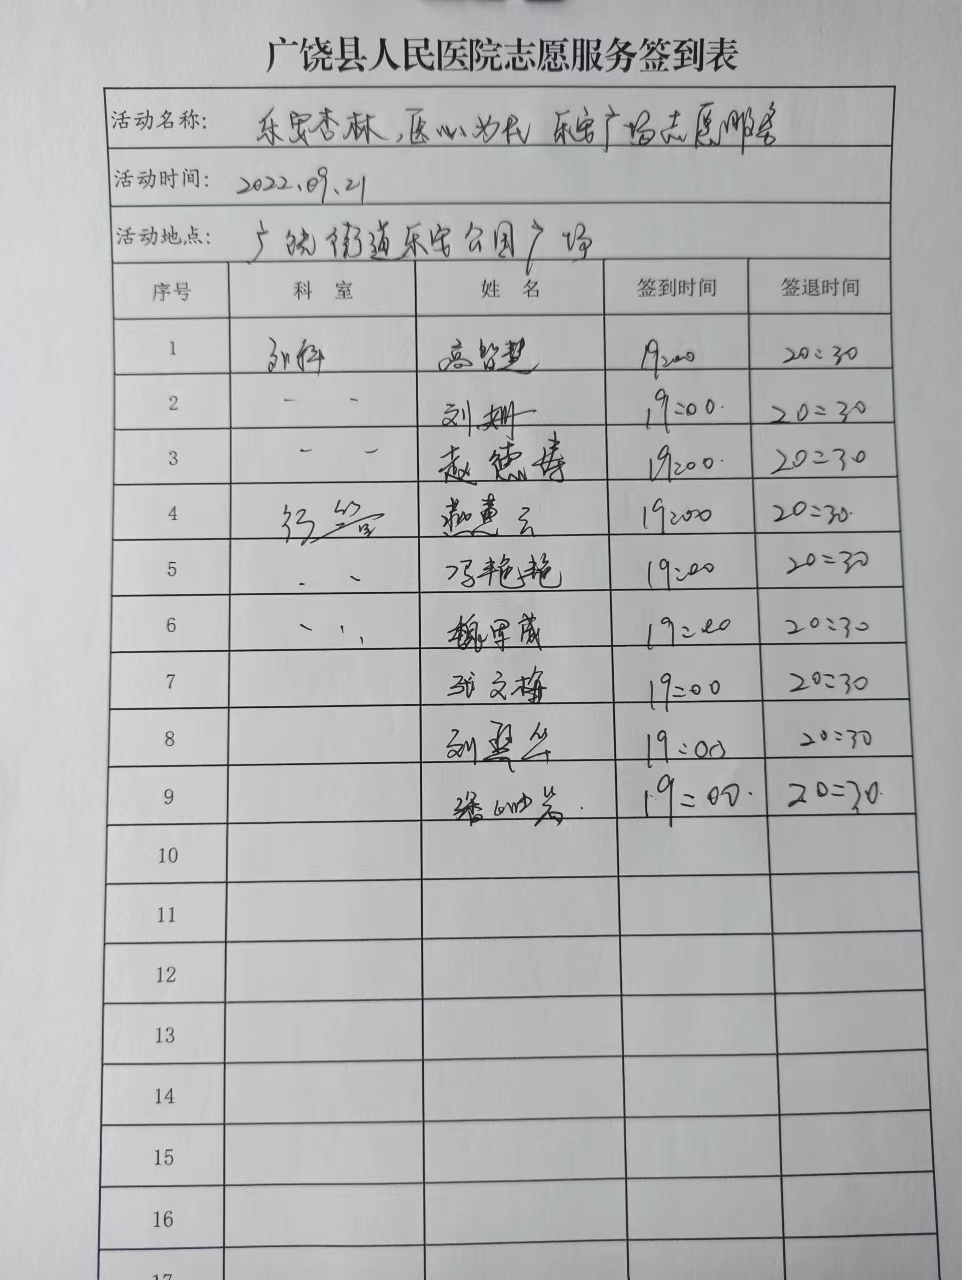 广饶县人民医院志愿服务签到表
活动名称: 乐安杏林,医心为民 乐安广场志愿服务
活动时间: 2022.09.21
活动地点: 广饶街道乐安公园广场
序号 科 室 姓 名 签到时间 签退时间
1 高智慧 19:00 20:30
2 刘姗 19:00 20:30
3 赵德寿 19:00 20:30
4 燕黄云 19:00 20:30
5 冯艳艳 19:00 20:30
6 魏军成 19:00 20:30
7 张文梅 19:00 20:30
8 刘 19:00 20:30
9 19:00 20:30
10
11
12
13
14
15
16
17